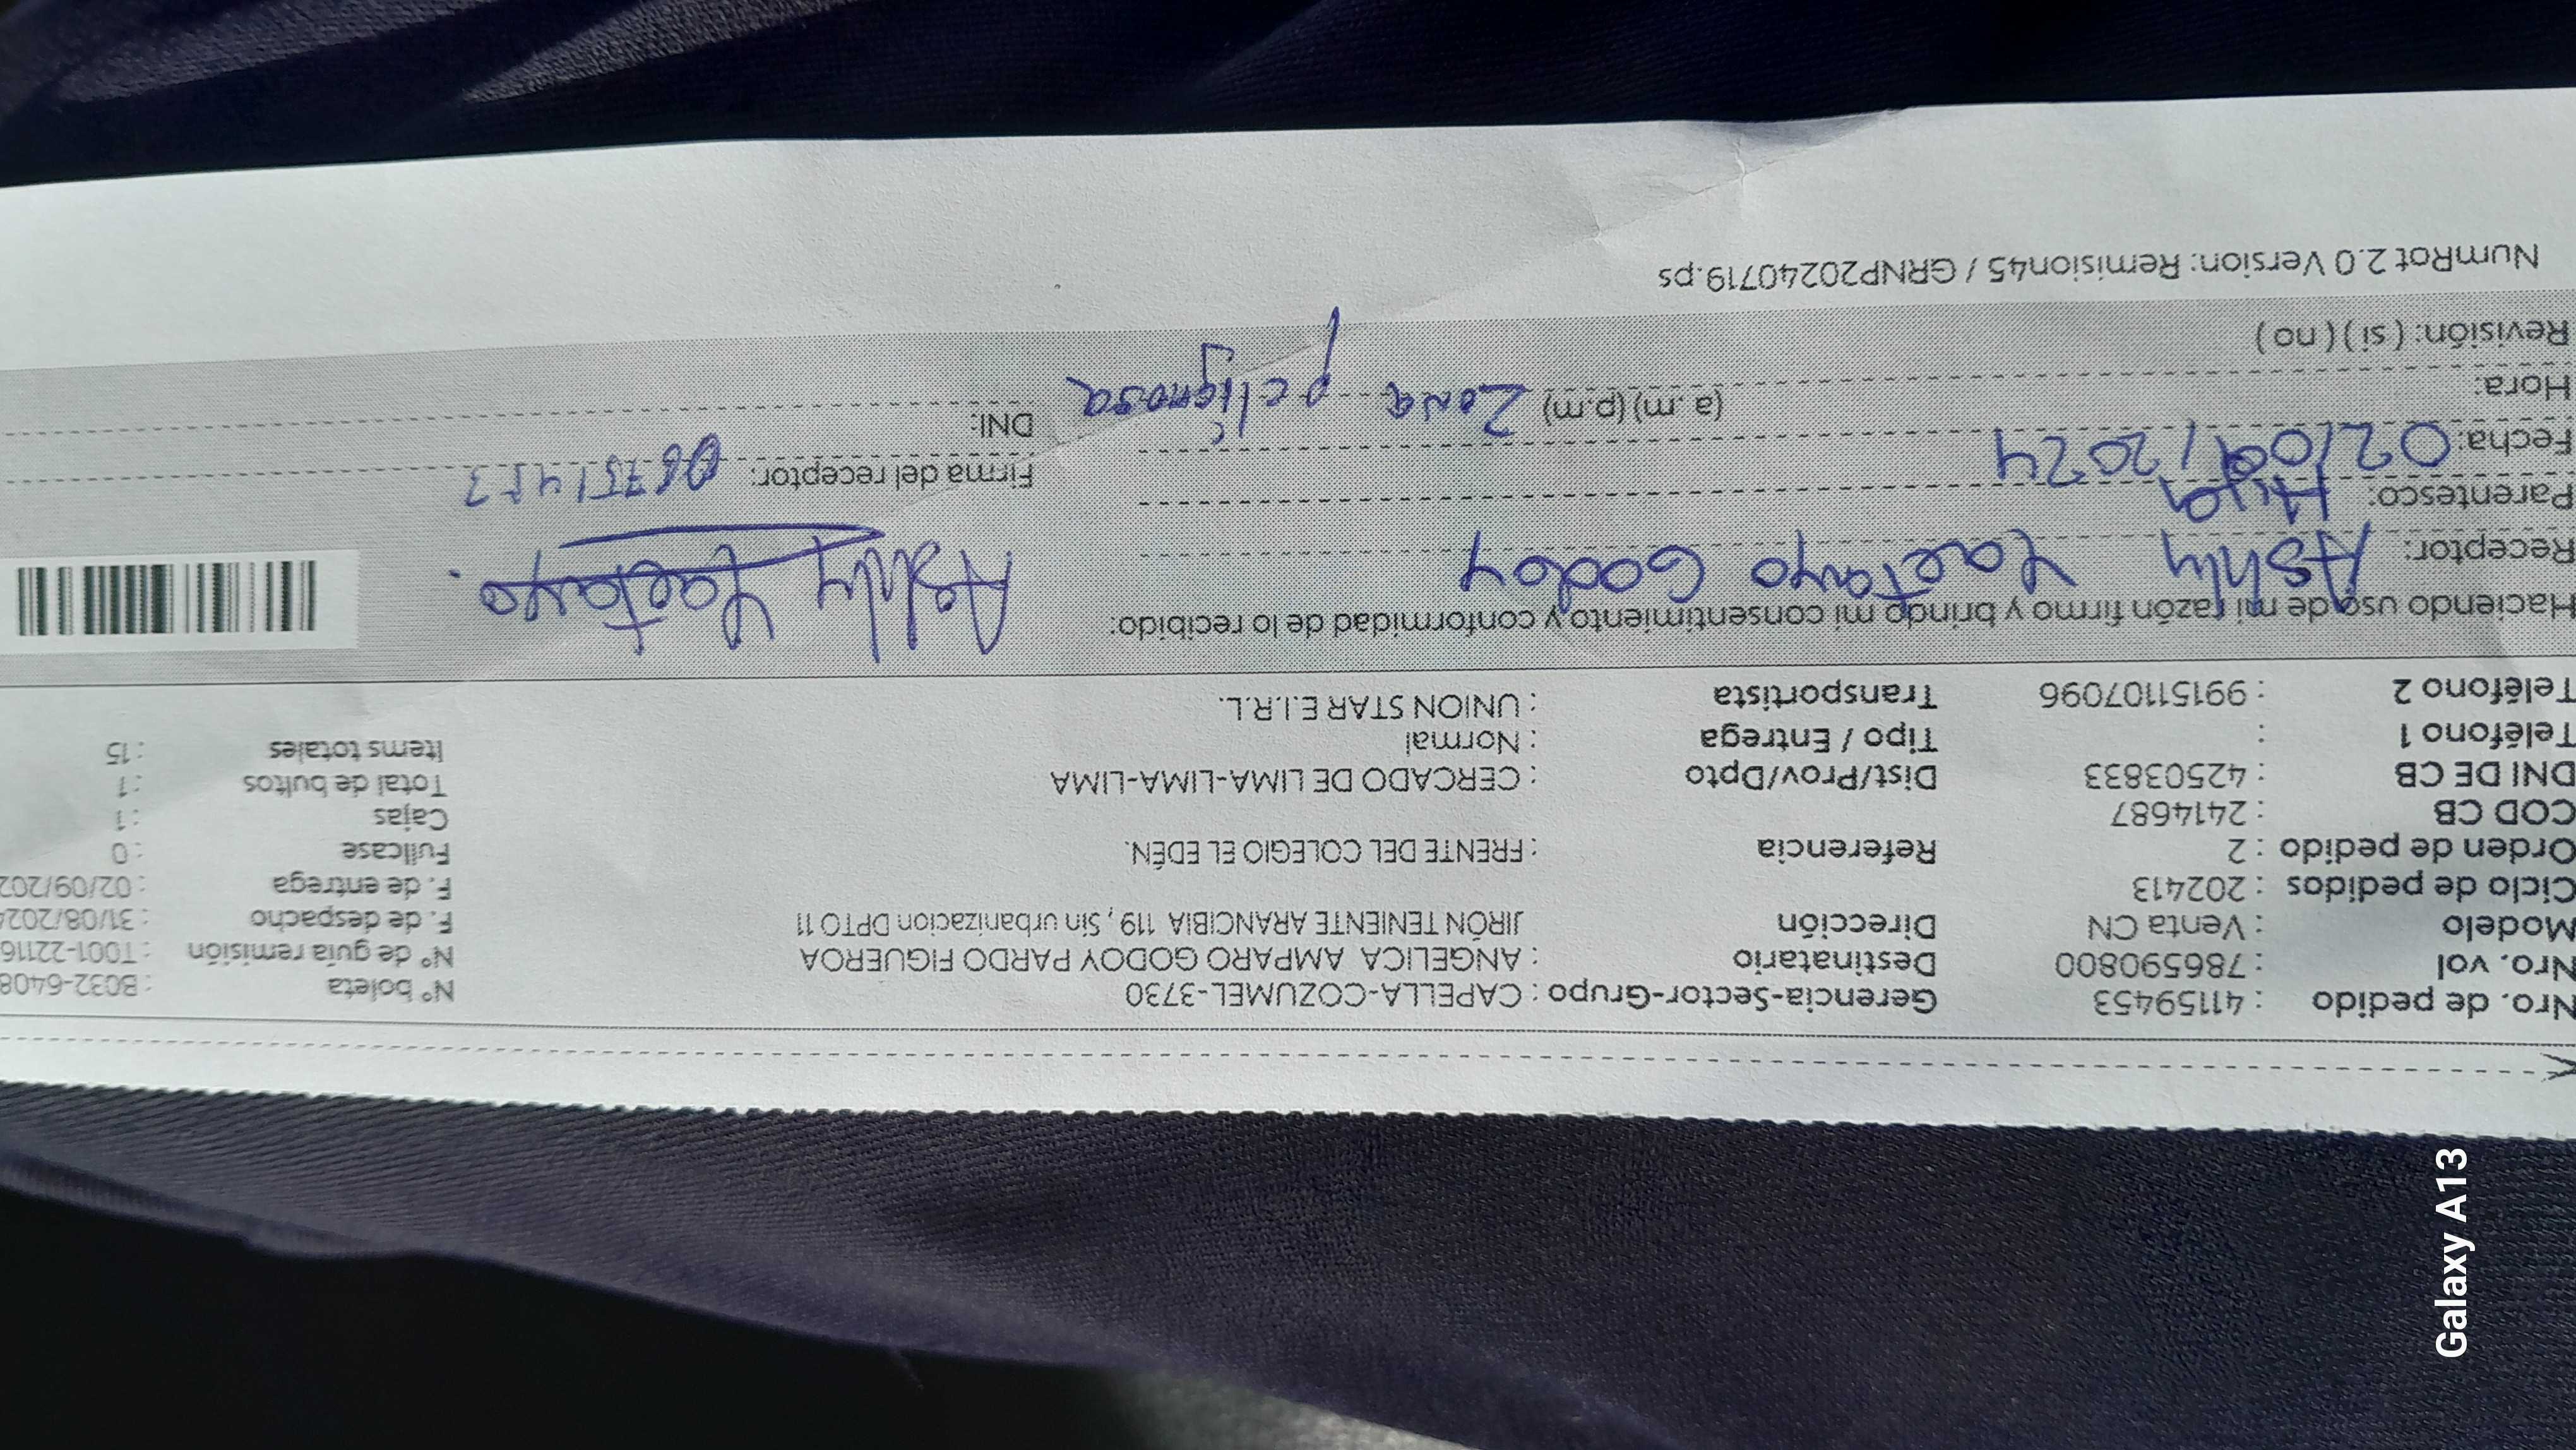 Nro. de pedido : 41159453 Gerencia-Sector-Grupo : CAPELLA-COZUMEL-3730 N° boleta : B032-6408
Nro. vol : 786590800 Destinatario : ANGELICA AMPARO GODOY PARDO FIGUEROA N° de guía remisión : T001-22116
Modelo : Venta CN Dirección JIRÓN TENIENTE ARANCIBIA 119 , Sin urbanizacion DPTO 11 F. de despacho : 31/08/202
Ciclo de pedidos : 202413 F. de entrega : 02/09/202
Orden de pedido : 2 Referencia : FRENTE DEL COLEGIO EL EDÉN. Fullcase : 0
COD CB : 2414687 Cajas : 1
DNI DE CB : 42503833 Dist/Prov/Dpto : CERCADO DE LIMA-LIMA-LIMA Total de bultos : 1
Teléfono 1 : Tipo / Entrega : Normal Items totales : 15
Teléfono 2 : 99151107096 Transportista : UNION STAR E.I.R.L.
Haciendo uso de mi razón firmo y brindo mi consentimiento y conformidad de lo recibido:
Receptor: Ashly Yactayo Godoy Ashly Yactayo.
Parentesco: Hija
Firma del receptor:
Fecha: 02/09/2024
DNI:
Hora: (a .m) (p.m) Zona peligrosa
Revisión: ( si ) ( no )
NumRot 2.0 Version: Remision45 / GRNP20240719.ps
Galaxy A13